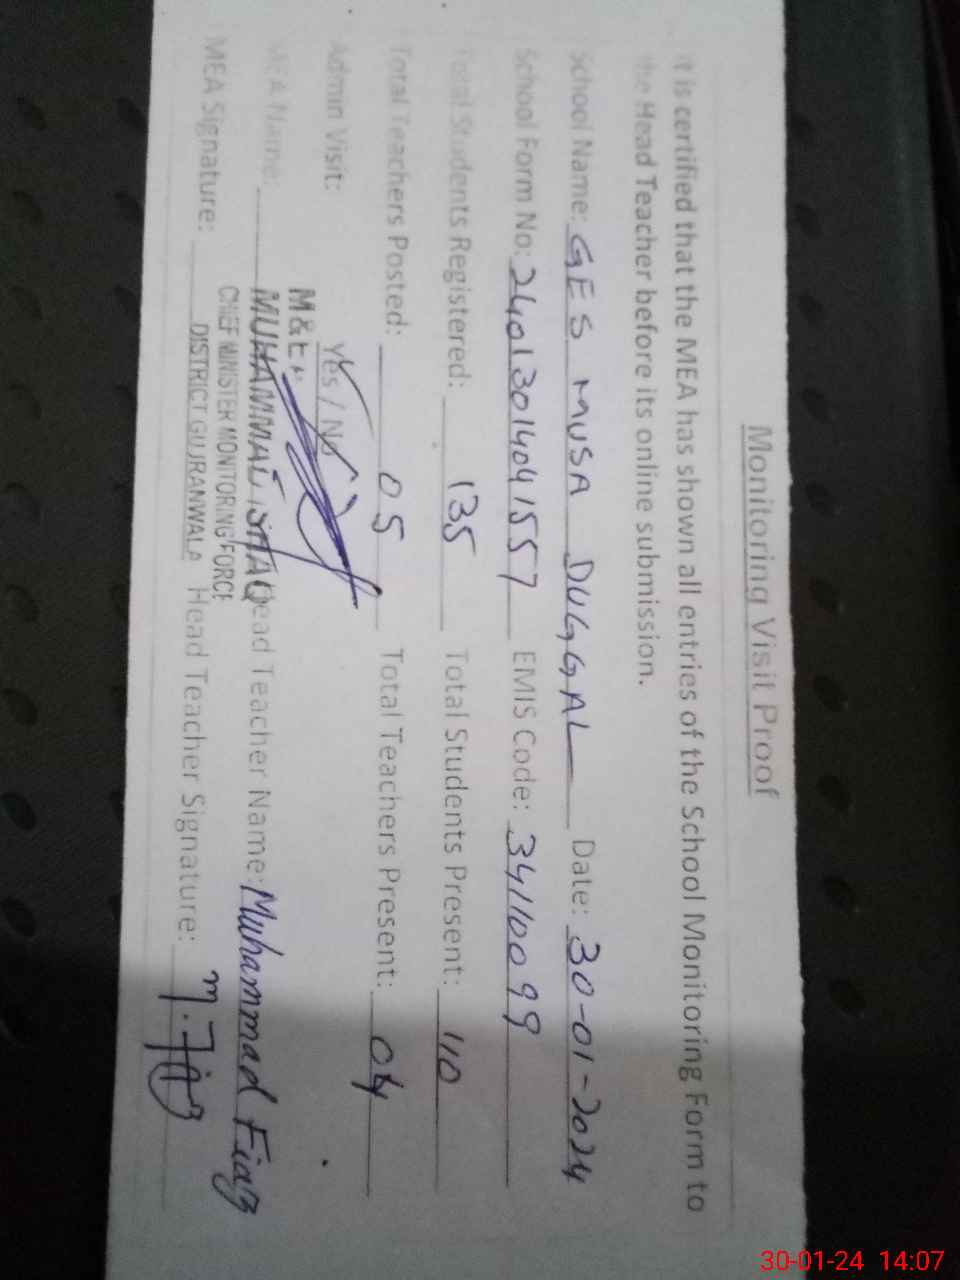 Monitoring Visit Proof
It is certified that the MEA has shown all entries of the School Monitoring Form to
the Head Teacher before its online submission.
School Name: GES MUSA DUGGAL Date: 30-01-2024
School Form No: 24013014041557 EMIS Code: 34110099
Total Students Registered: 135 Total Students Present: 110
Total Teachers Posted: 05 Total Teachers Present: 04
Admin Visit: Yes / No
MEA Name: MUHAMMAD ISHAQ Head Teacher Name: Muhammad Fiaz
CHIEF MINISTER MONITORING FORCE
MEA Signature: DISTRICT GUJRANWALA Head Teacher Signature: M. Fiaz
30-01-24 14:07